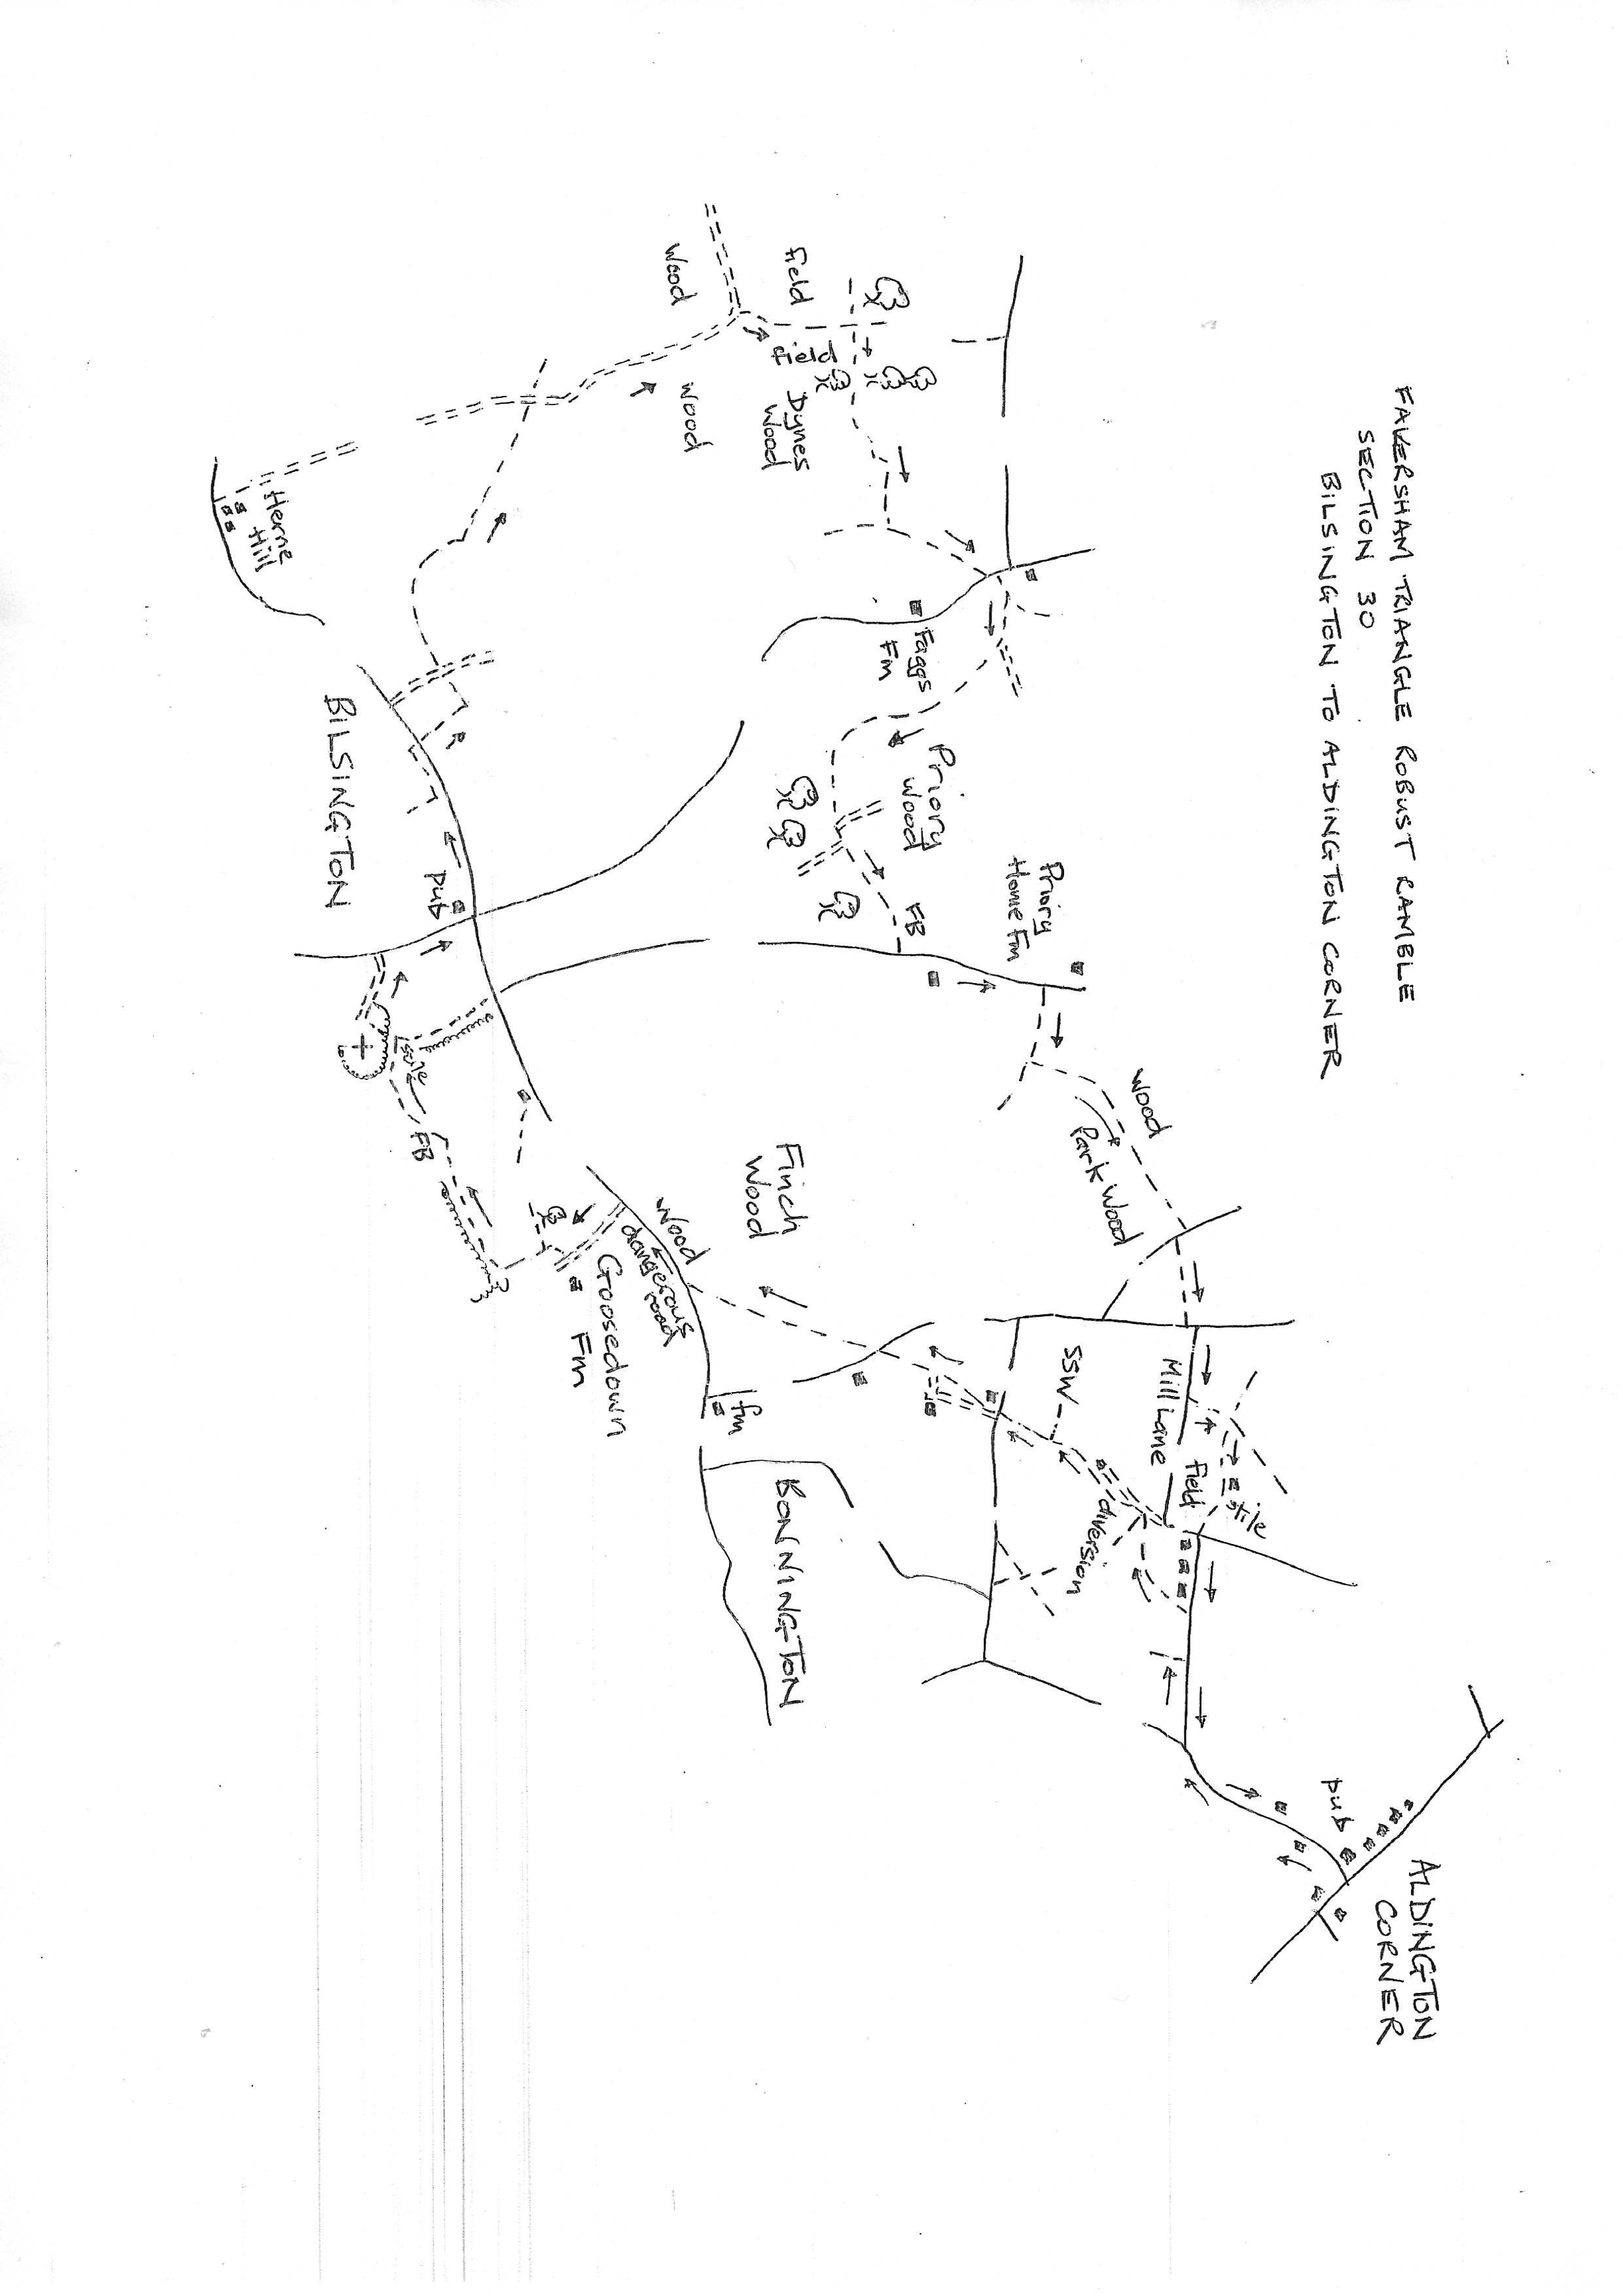 FAVERSHAM TRIANGLE ROBUST RAMBLE
SECTION 30
BILSINGTON TO ALDINGTON CORNER
ALDINGTON
CORNER
pub
stile
field
Mill Lane
wood
Park Wood
diversion
SSW
Priory
Home Fm
Faggs
Fm
Priory
Wood
FB
field
field
Dynes
Wood
Wood
wood
Finch
Wood
fm
BONNINGTON
Wood
dangerous
road
Goosedown
Fm
pub
stile
FB
BILSINGTON
Herne
Hill